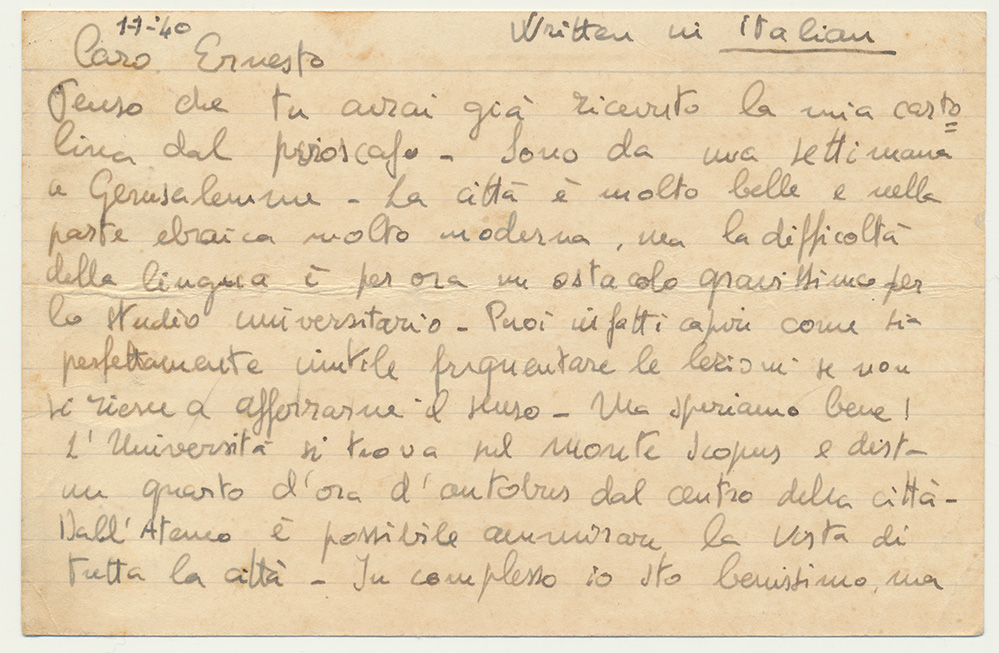 1-1-'40
Written in Italian
Caro Ernesto
Penso che tu avrai già ricevuto la mia carto=
lina dal piroscafo - Sono da una settimana
a Gerusalemme - La città è molto bella e nella
parte ebraica molto moderna, ma la difficoltà
della lingua è per ora un ostacolo gravissimo per
lo studio universitario - Puoi infatti capire come sia
perfettamente inutile frequentare le lezioni se non
si riesce a afferrarne il senso - Ma speriamo bene!
L'Università si trova sul monte Scopus e dista
un quarto d'ora d'autobus dal centro della città -
Dall'Ateneo è possibile ammirare la vista di
tutta la città - In complesso io sto benissimo, ma